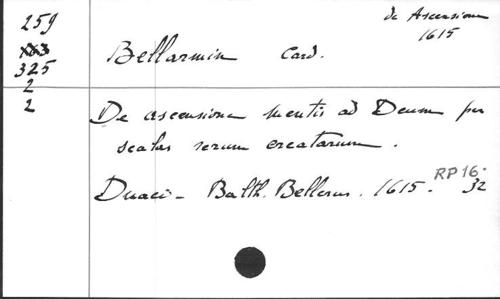 259
de Ascensione
1615
325
2
2
Bellarmin Card.
De ascensione mentis ad Deum per
scalas rerum creatarum.
Duaci - Balth. Bellerus. 1615. RP 16. 32